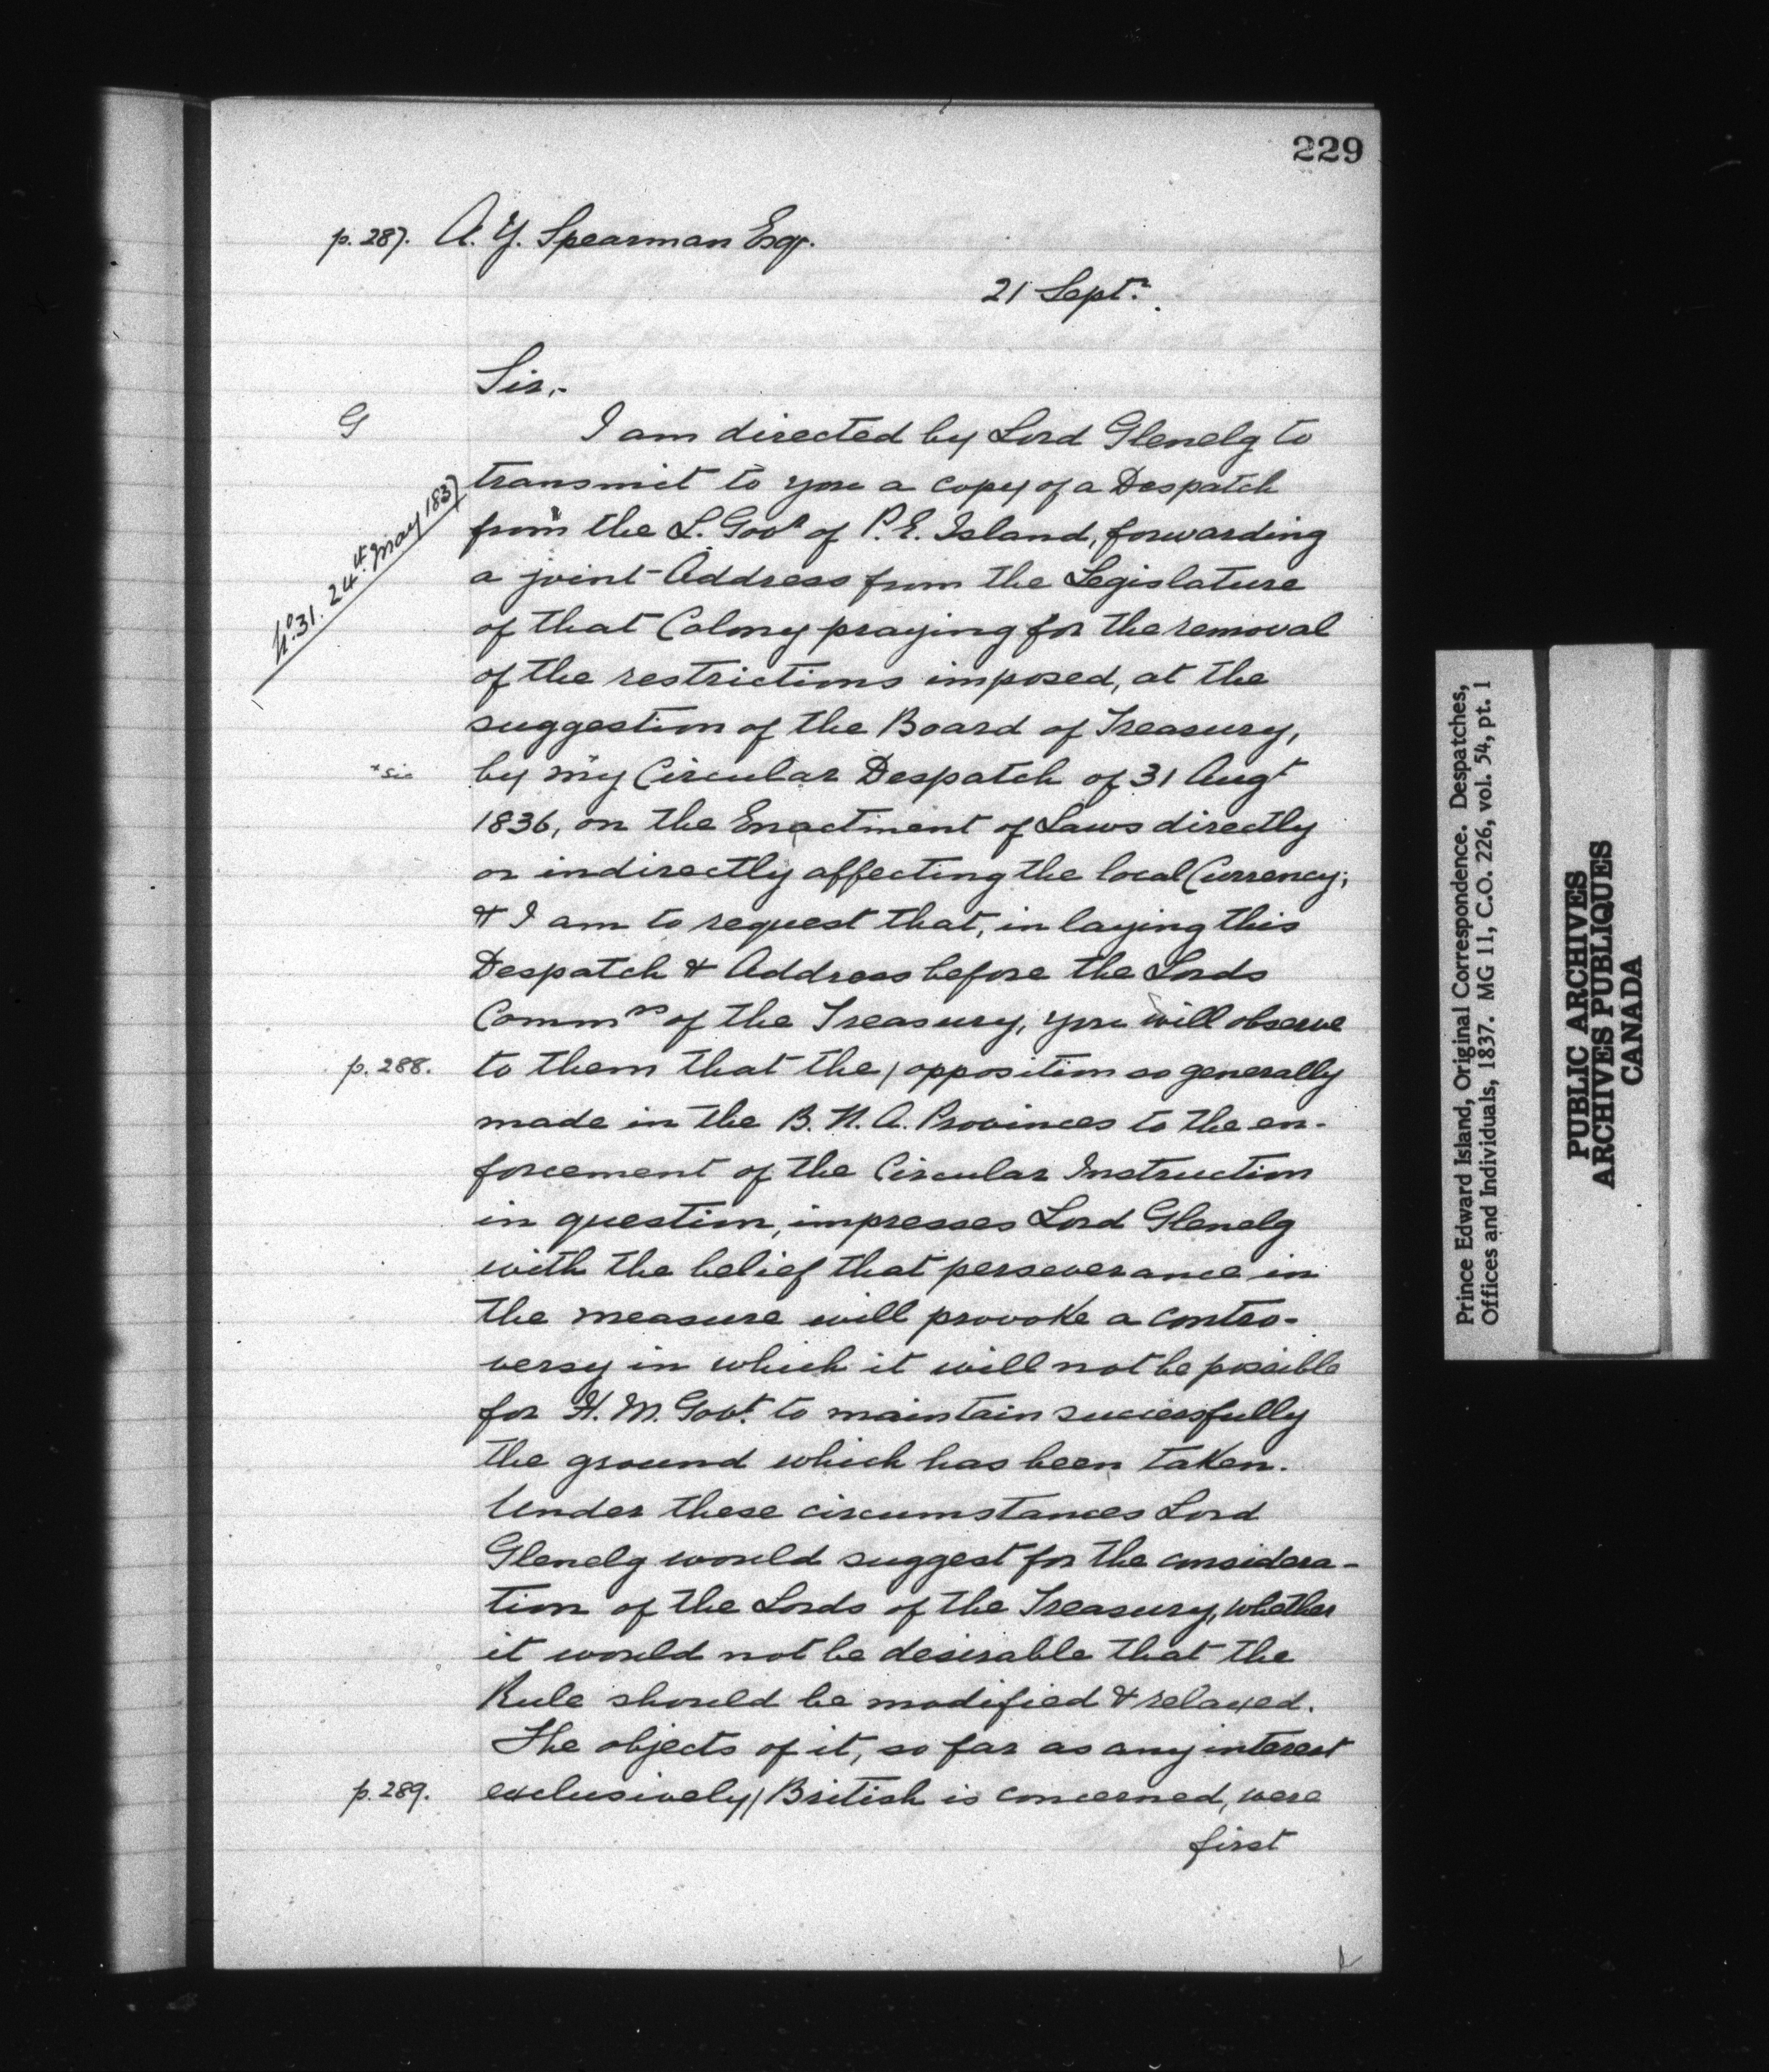 229
p. 287. A. Y. Spearman Esqr.
21 Septr.
Sir,-
G
I am directed by Lord Glenelg to
No. 31. 24th. May 1837
transmit to you a copy of a Despatch
from the L. Govr of P. E. Island, forwarding
a joint Address from the Legislature
of that Colony praying for the removal
of the restrictions imposed, at the
suggestion of the Board of Treasury,
*sic by my Circular Despatch of 31 Augt
1836, on the Enactment of Laws directly
or indirectly affecting the local Currency;
& I am to request that, in laying this
Despatch & Address before the Lords
Commrs of the Treasury, you will observe
p. 288. to them that the / opposition so generally
made in the B. N. A. Provinces to the en-
forcement of the Circular Instruction
in question, impresses Lord Glenelg
with the belief that perseverance in
the measure will provoke a contro-
versy in which it will not be possible
for H. M. Govt. to maintain successfully
the ground which has been taken.
Under these circumstances Lord
Glenelg would suggest for the considera-
tion of the Lords of the Treasury, whether
it would not be desirable that the
Rule should be modified & relaxed.
The objects of it, so far as any interest
p. 289. exclusively / British is concerned, were
first
Prince Edward Island, Original Correspondence. Despatches,
Offices and Individuals, 1837. MG 11, C.O. 226, vol. 54, pt. 1
PUBLIC ARCHIVES
ARCHIVES PUBLIQUES
CANADA